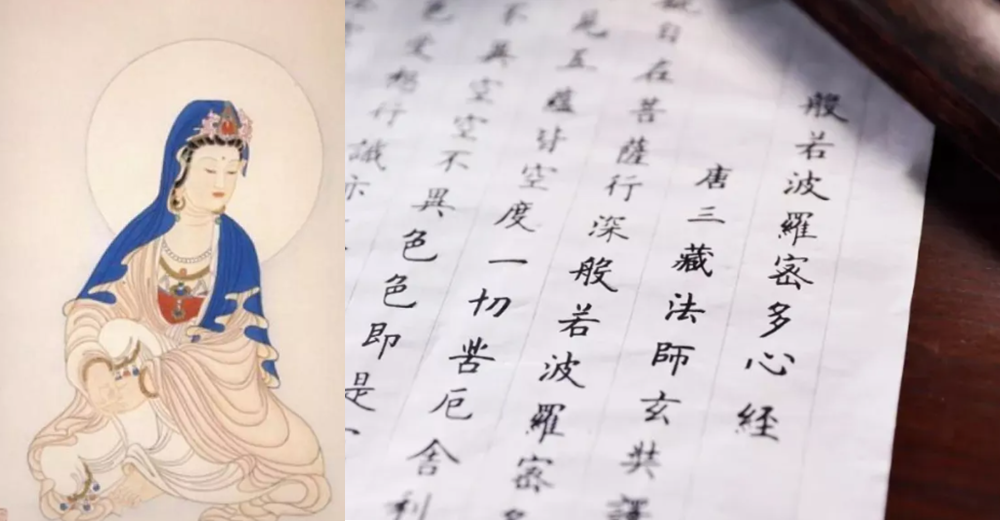 般若波羅密多心経
唐三藏法師玄奘譯
自在菩薩行深般若波羅密多
見五蘊皆空度一切苦厄舍利
不異空空不異色色即是
色受想行識亦